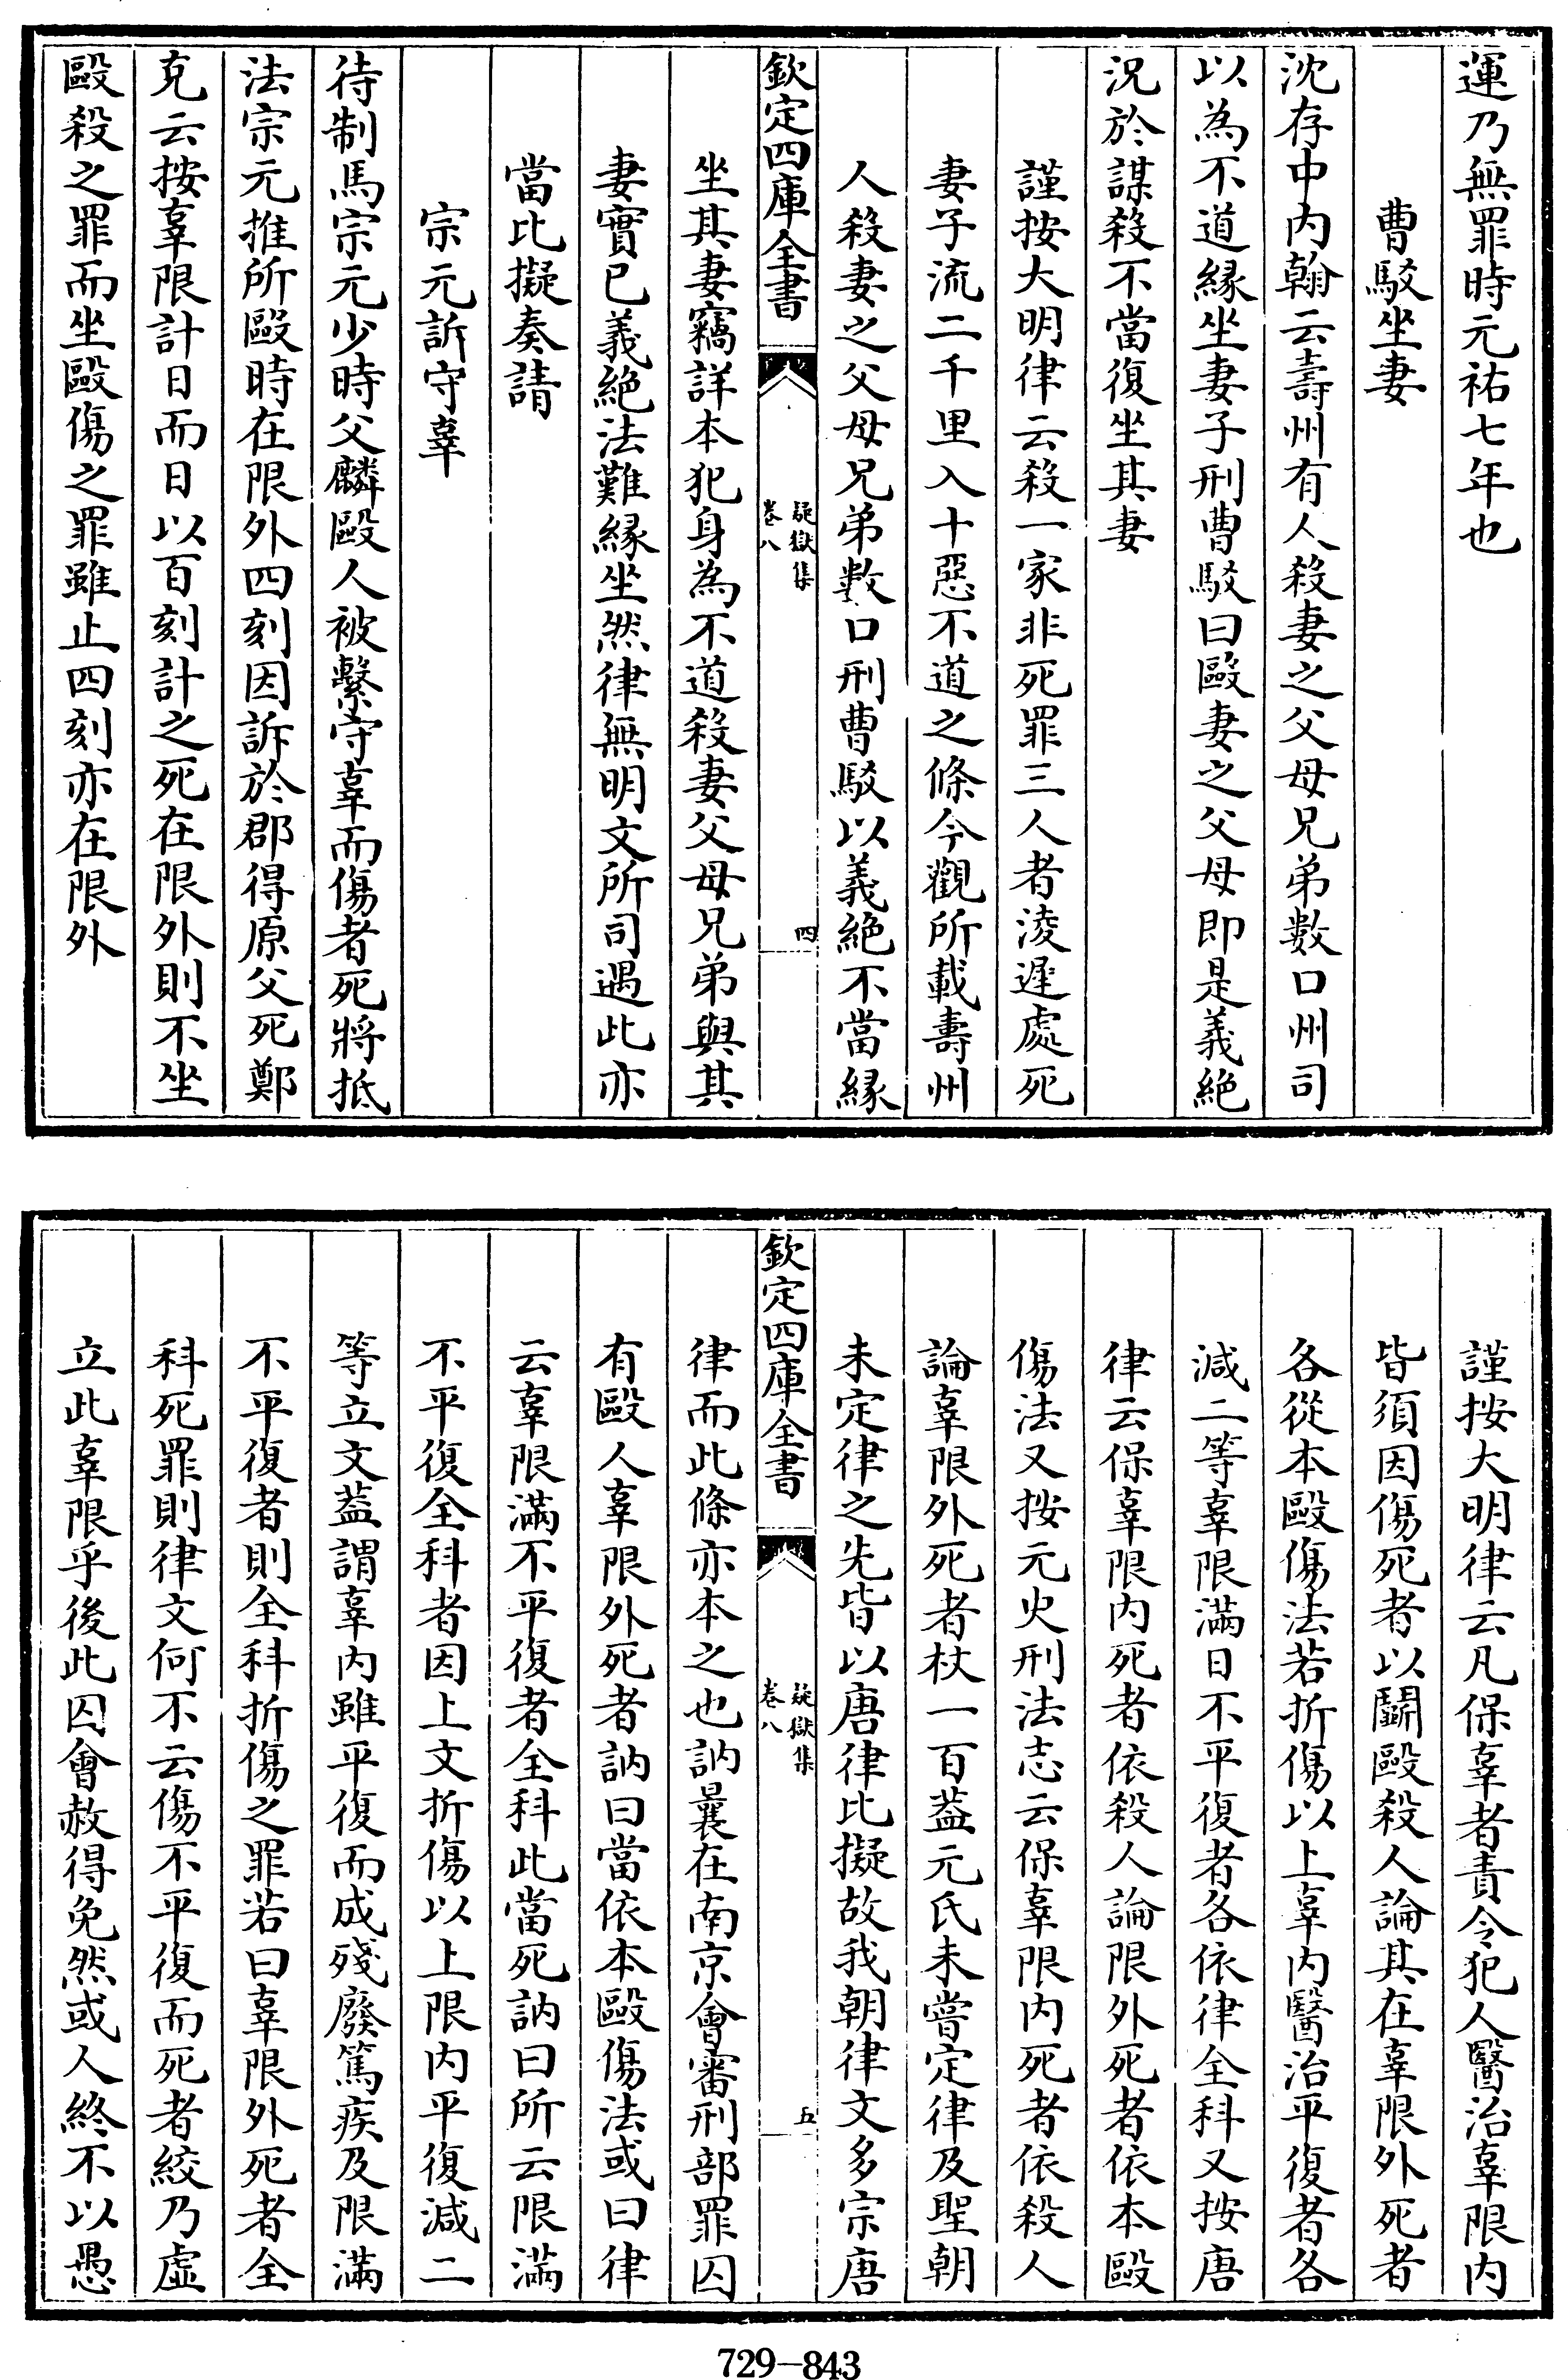 運乃無罪時元祐七年也
曹駁坐妻
沈存中內翰云壽州有人殺妻之父母兄弟數口州司
以為不道緣坐妻子刑曹駁曰毆妻之父母即是義絕
況於謀殺不當復坐其妻
謹按大明律云殺一家非死罪三人者淩遲處死
妻子流二千里入十惡不道之條今觀所載壽州
人殺妻之父母兄弟數口刑曹駁以義絕不當緣
欽定四庫全書
疑獄集
卷八
四
坐其妻竊詳本犯身為不道殺妻父母兄弟與其
妻實已義絕法難緣坐然律無明文所司遇此亦
當比擬奏請
宗元訴守辜
待制馬宗元少時父麟毆人被繫守辜而傷者死將抵
法宗元推所毆時在限外四刻因訴於郡得原父死鄭
克云按辜限計日而日以百刻計之死在限外則不坐
毆殺之罪而坐毆傷之罪雖止四刻亦在限外
謹按大明律云凡保辜者責令犯人醫治辜限內
皆須因傷死者以鬬毆殺人論其在辜限外死者
各從本毆傷法若折傷以上辜內醫治平復者各
減二等辜限滿日不平復者各依律全科又按唐
律云保辜限內死者依殺人論限外死者依本毆
傷法又按元火刑法志云保辜限內死者依殺人
論辜限外死者杖一百葢元氏未嘗定律及聖朝
未定律之先皆以唐律比擬故我朝律文多宗唐
欽定四庫全書
疑獄集
卷八
五
律而此條亦本之也訥曩在南京會審刑部罪囚
有毆人辜限外死者訥曰當依本毆傷法或曰律
云辜限滿不平復者全科此當死訥曰所云限滿
不平復全科者因上文折傷以上限內平復減二
等立文葢謂辜內雖平復而成殘廢篤疾及限滿
不平復者則全科折傷之罪若曰辜限外死者全
科死罪則律文何不云傷不平復而死者絞乃虛
立此辜限乎後此囚會赦得免然或人終不以愚
729-843